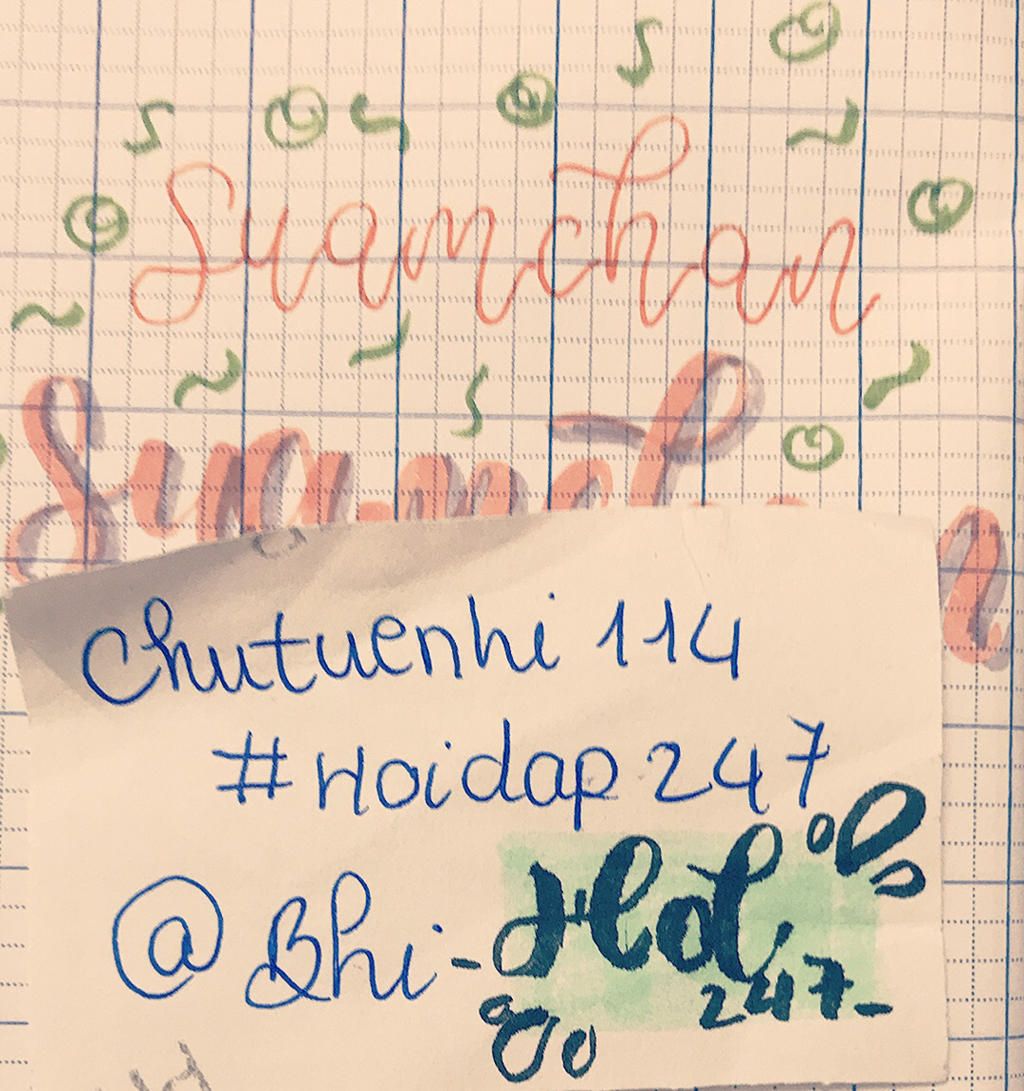 Suamchan
Chutuenhi 114
#Hoidap 247
@Bhi-
247-